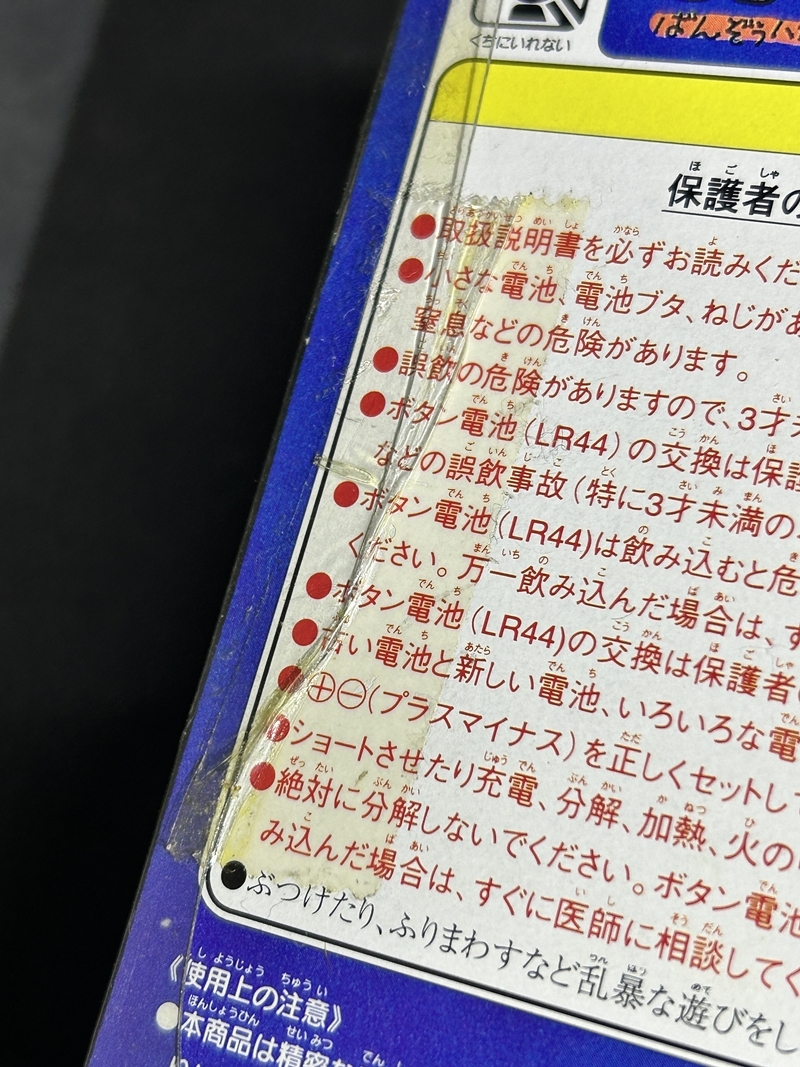 くちにいれない
ばんぞう
保護者の
●取扱説明書を必ずお読みくだ
●小さな電池、電池ブタ、ねじがあ
窒息などの危険があります。
●誤飲の危険がありますので、3才未
●ボタン電池(LR44)の交換は保護
などの誤飲事故(特に3才未満の
●ボタン電池(LR44)は飲み込むと危
ください。万一飲み込んだ場合は、す
●ボタン電池(LR44)の交換は保護者
●古い電池と新しい電池、いろいろな電
●⊕⊖(プラスマイナス)を正しくセットして
●ショートさせたり充電、分解、加熱、火の
●絶対に分解しないでください。ボタン電池
み込んだ場合は、すぐに医師に相談してく
●ぶつけたり、ふりまわすなど乱暴な遊びをし
《使用上の注意》
●本商品は精密な